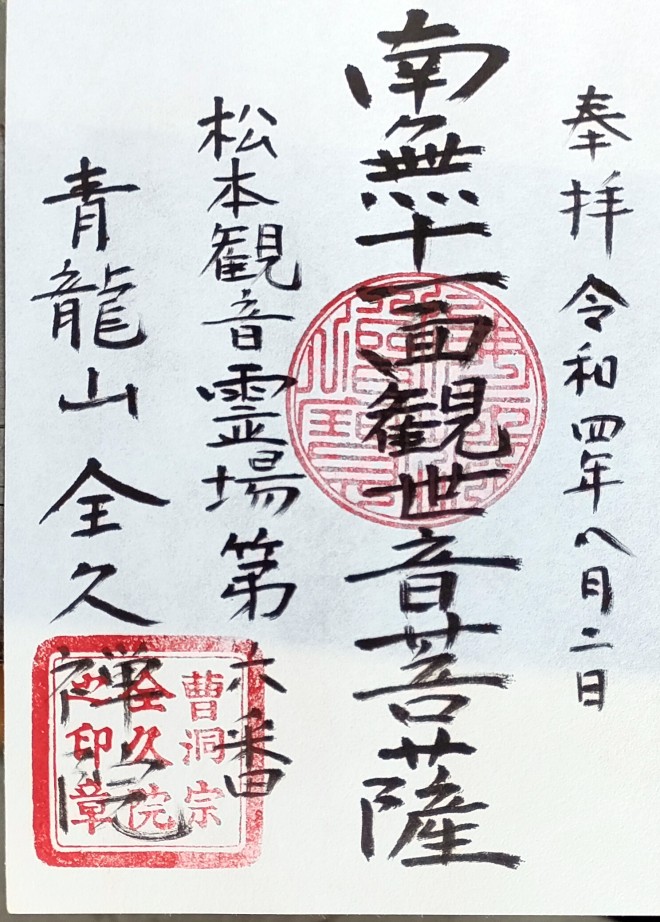 奉拝 令和四年八月二日
南無十一面観世音菩薩
松本観音霊場第六番
青龍山 全久禅院
曹洞宗
全久院
之印章